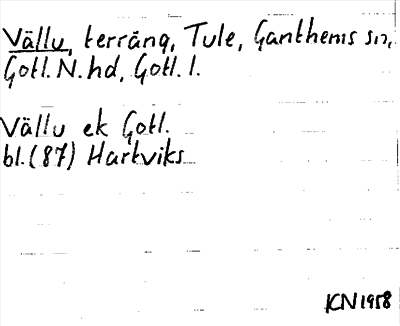 Vällu, terräng, Tule, Ganthems sn,
Gotl. N. hd, Gotl. l.
Vällu ek Gotl.
bl. (87) Hartviks
KN 1958